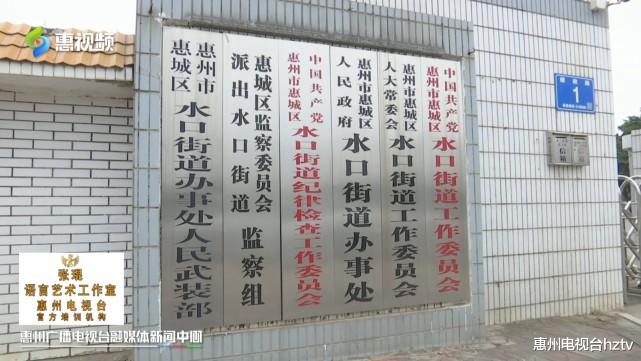 惠视频
中国共产党
惠州市惠城区
水口街道工作委员会
惠州市惠城区
人大常委会
水口街道工作委员会
惠州市惠城区
人民政府
水口街道办事处
中国共产党
惠州市惠城区
水口街道纪律检查工作委员会
惠城区监察委员会
派出水口街道
监察组
惠州市
惠城区
水口街道办事处人民武装部
1
信箱
张琨
语言艺术工作室
惠州电视台
官方培训机构
惠州广播电视台融媒体新闻中心
惠州电视台hztv